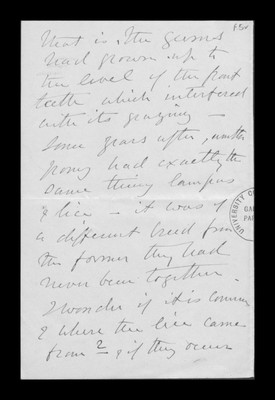 f 5v
that is the gums
had grown up to
the level of the front
teeth which interfered
with its grazing –
Some years after, another
pony had exactly the
same thing lampas
& lice – it was of
a different breed from
the former they had
never been together
I wonder if it is common
& where the lice came
from ? & if they occur
UNIVERSITY